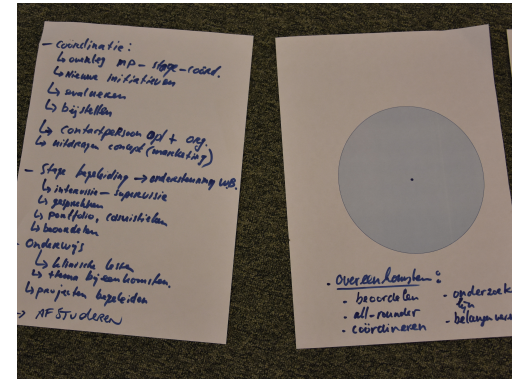 - coördinatie:
↳ overleg MP - stage-coörd.
↳ nieuwe initiatieven
↳ evalueren
↳ bijstellen
↳ contactpersoon opl + org.
↳ uitdragen concept (marketing)
- Stage begeleiding → ondersteuning w.B.
↳ intervisie - supervisie
↳ gesprekken
↳ portfolio, casuïstieken
↳ beoordelen
- Onderwijs
↳ klinische lessen
↳ thema bijeenkomsten.
↳ projecten begeleiden
→ AFSTUDEREN
- Overeenkomsten:
- beoordelen
- all-rounder
- coördineren
- onderzoek
lijn